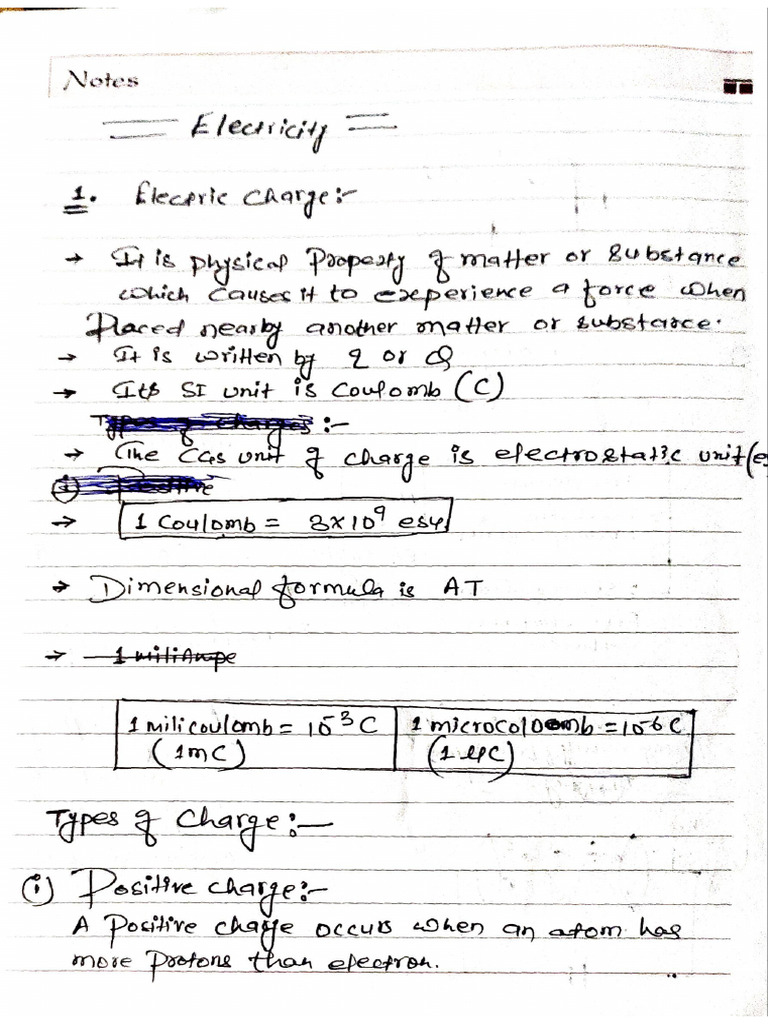 Notes
Electricity
1. Electric Charge:-
→ It is physical Property of matter or substance
which causes it to experience a force when
Placed nearby another matter or substance.
→ It is written by q or Q
→ Its SI unit is Coulomb (C)
Types of charges :-
→ The CGS unit of charge is electrostatic unit (es
(i) Positive
→ 1 Coulomb = 3×10⁹ esu
→ Dimensional formula is AT
→ 1 miliAmpe
1 milicoulomb = 10⁻³ C 1 microcoloomb = 10⁻⁶ C
(1mC) (1 μC)
Types of Charge:-
(i) Positive charge:-
A Positive charge occurs when an atom has
more Protons than electron.